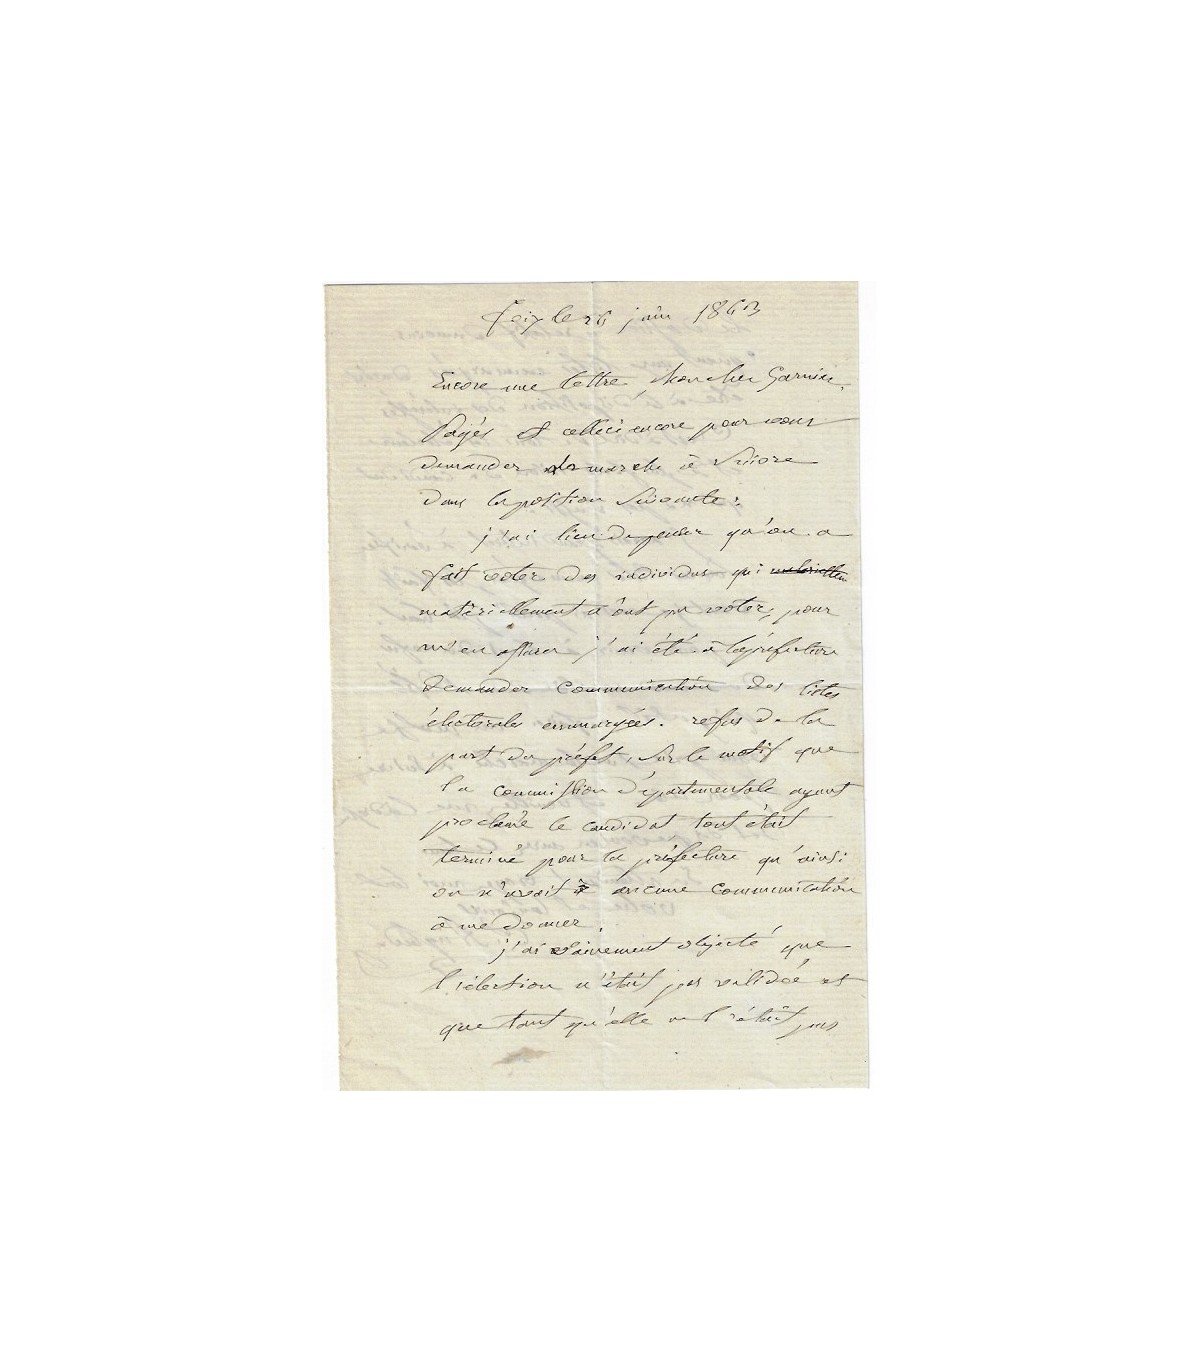 Foix le 26 juin 1863
Encore une lettre, Mon cher Garnier,
Pagés et celleci encore pour vous
demander la marche à suivre
dans la position suivante :
j'ai lieu de penser qu'on a
fait voter des individus qui
matériellement n'ont pu voter, pour
m'en assurer j'ai été à la préfecture
demander communication des listes
électorales emmargées. refus de la
part du préfet, sur le motif que
la commission départementale ayant
proclamé le candidat tout était
terminé pour la préfecture qu'ainsi
on n'avait aucune communication
à me donner.
j'ai vainement objecté que
l'idection n'était pas validée et
que tant qu'elle ne l'était pas